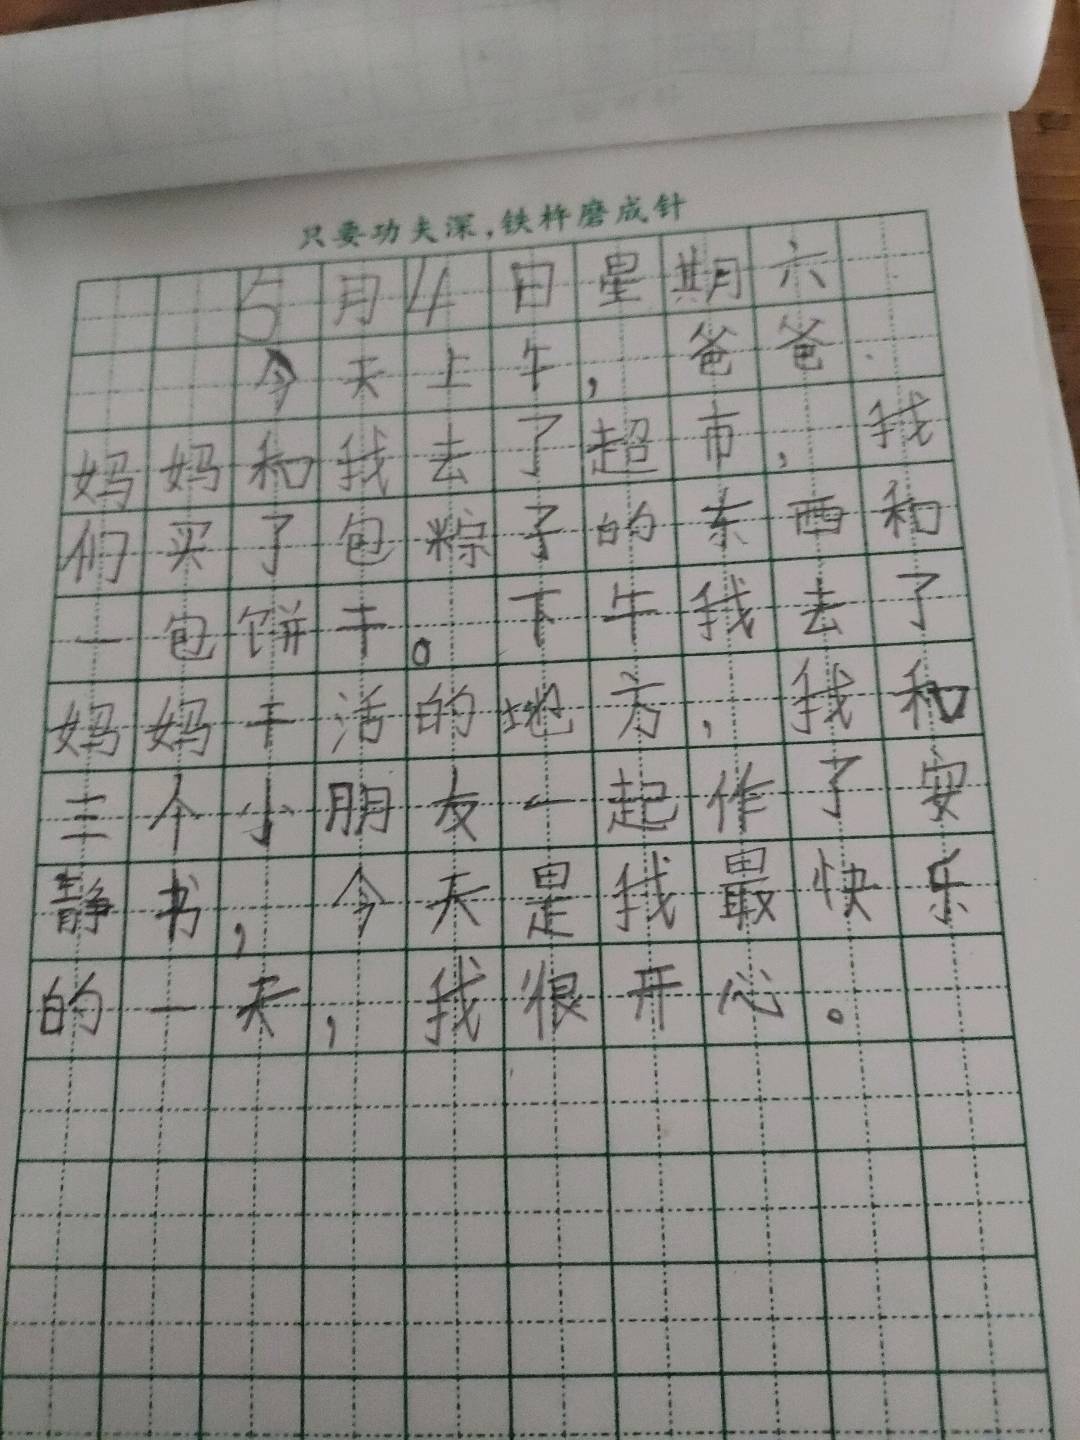 只要功夫深，铁杵磨成针
5月4日星期六
今天上午，爸爸、
妈妈和我去了超市，我
们买了包粽子的东西和
一包饼干。下午我去了
妈妈干活的地方，我和
三个小朋友一起作了安
静书，今天是我最快乐
的一天，我很开心。